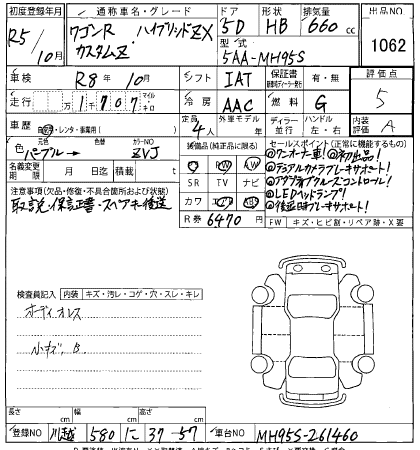 初度登録年月
通称車名・グレード
ドア
形状
排気量
出品NO
R5/10月
ワゴンR ハイブリッドZX
カスタムZ
5D
HB
660cc
1062
型式
5AA-MH95S
車検
R8年10月
シフト
IAT
保証書
有・無
評価点
5
走行
1707
マイル
キロ
冷房
AAC
燃料
G
車歴
レンタ・事業用( )
定員
4人
外車モデル
年
ディーラー
並行
ハンドル
左・右
内装
評価
A
色
元色
色替
カラーNO
パープル→
ZVJ
装備品(純正品に限る)
PW
AW
SR
TV
ナビ
カワ
ABS
セールスポイント(正常に機能するもの)
◎ワンオーナー車!◎初出品!
◎デュアルカメラブレーキサポート!
◎アダプティブクルーズコントロール!
◎LEDヘッドランプ!
◎後退時ブレーキサポート!
名義変更
期限
月
日
積載
t
注意事項(欠品・修復・不具合箇所および状態)
取説・保証書・スペアキー後送
R券
6470円
FW
キズ・ヒビ割・リペア跡・X要
検査員記入
内装
キズ・汚レ・コゲ・穴・スレ・キレ
ボディーオレス
小キズ、B
長さ
cm
幅
cm
高さ
cm
登録NO
川越 580 に 37-57
車台NO
MH95S-261460